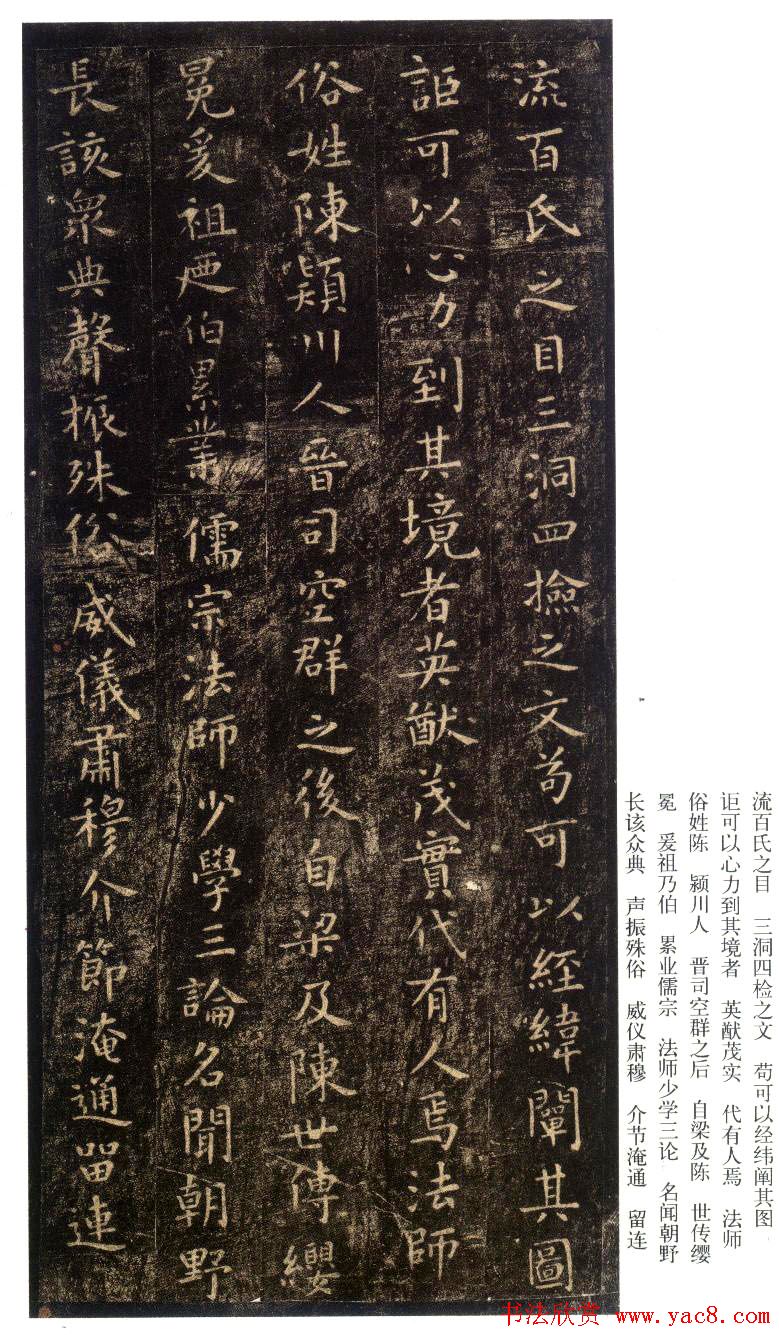 流百氏之目三洞四撿之文苟可以経緯闡其圖
詎可以心力到其境者英猷茂實代有人焉法師
俗姓陳潁川人晉司空群之後自梁及陳世傳纓
冕爰祖廼伯累業儒宗法師少學三論名聞朝野
長該衆典聲振殊俗威儀肅穆介節淹通留連
流百氏之目 三洞四检之文 苟可以经纬阐其图
讵可以心力到其境者 英猷茂实 代有人焉 法师
俗姓陈 颍川人 晋司空群之后 自梁及陈 世传缨
冕 爰祖乃伯 累业儒宗 法师少学三论 名闻朝野
长该众典 声振殊俗 威仪肃穆 介节淹通 留连
书法欣赏 www.yac8.com